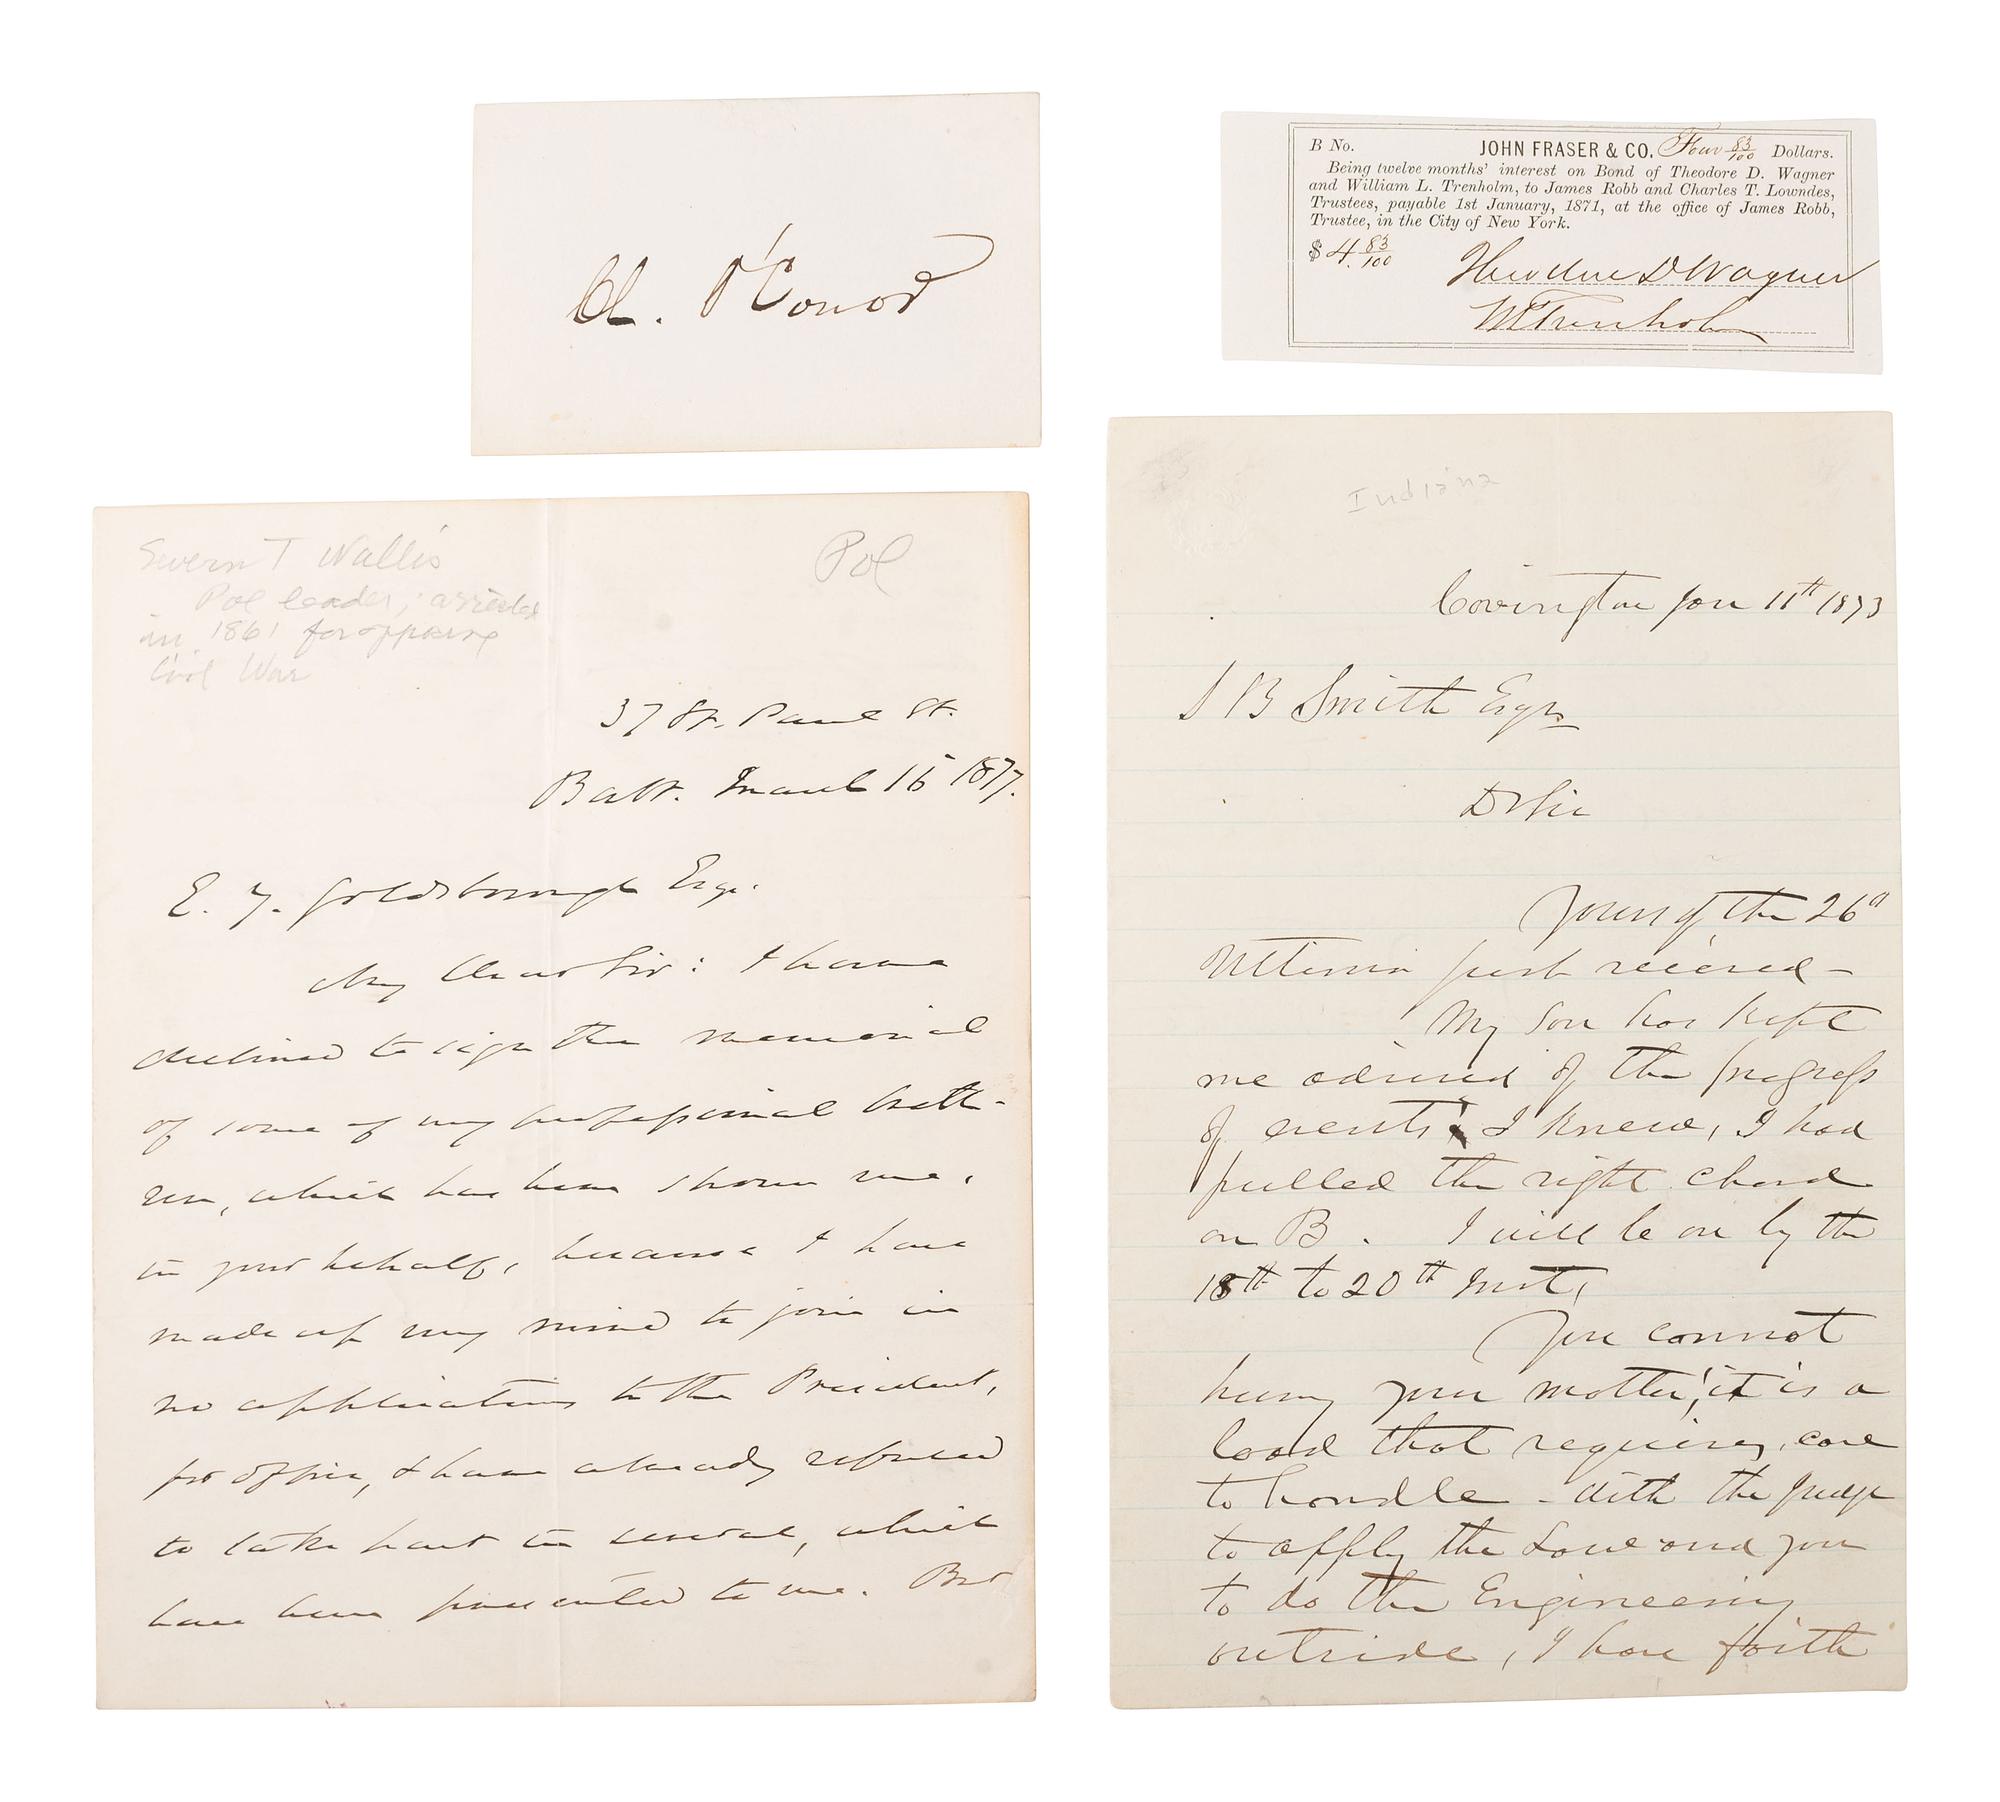 Ch. O'Conor
B No. JOHN FRASER & CO. Four 83/100 Dollars.
Being twelve months' interest on Bond of Theodore D. Wagner
and William L. Trenholm, to James Robb and Charles T. Lowndes,
Trustees, payable 1st January, 1871, at the office of James Robb,
Trustee, in the City of New York.
$ 4. 83/100
Theodore D Wagner
W L Trenholm
Severn T Wallis
Pol leader; arrested
in 1861 for opposing
Civil War
Pol
37 St. Paul St.
Balt. March 15 1877.
E. Y. Goldsborough Esq.
My Dear Sir: I have
declined to sign the memorial
of some of my professional breth-
ren, which has been shown me,
in your behalf, because I have
made up my mind to join in
no applications to the President,
for office, & have already refused
to take part in several, which
have been presented to me. But
Indiana
Covington Jan 11th 1873
S B Smith Esqr
D Sir
Yours of the 26th
Ultimo just received -
My Son has kept
me advised of the progress
of events, I knew, I had
pulled the right chord
on B. I will be on by the
18th to 20th Inst,
You cannot
hurry your matter, it is a
load that requires, care
to handle - With the Judge
to apply the Law and you
to do the Engineering
outside, I have faith